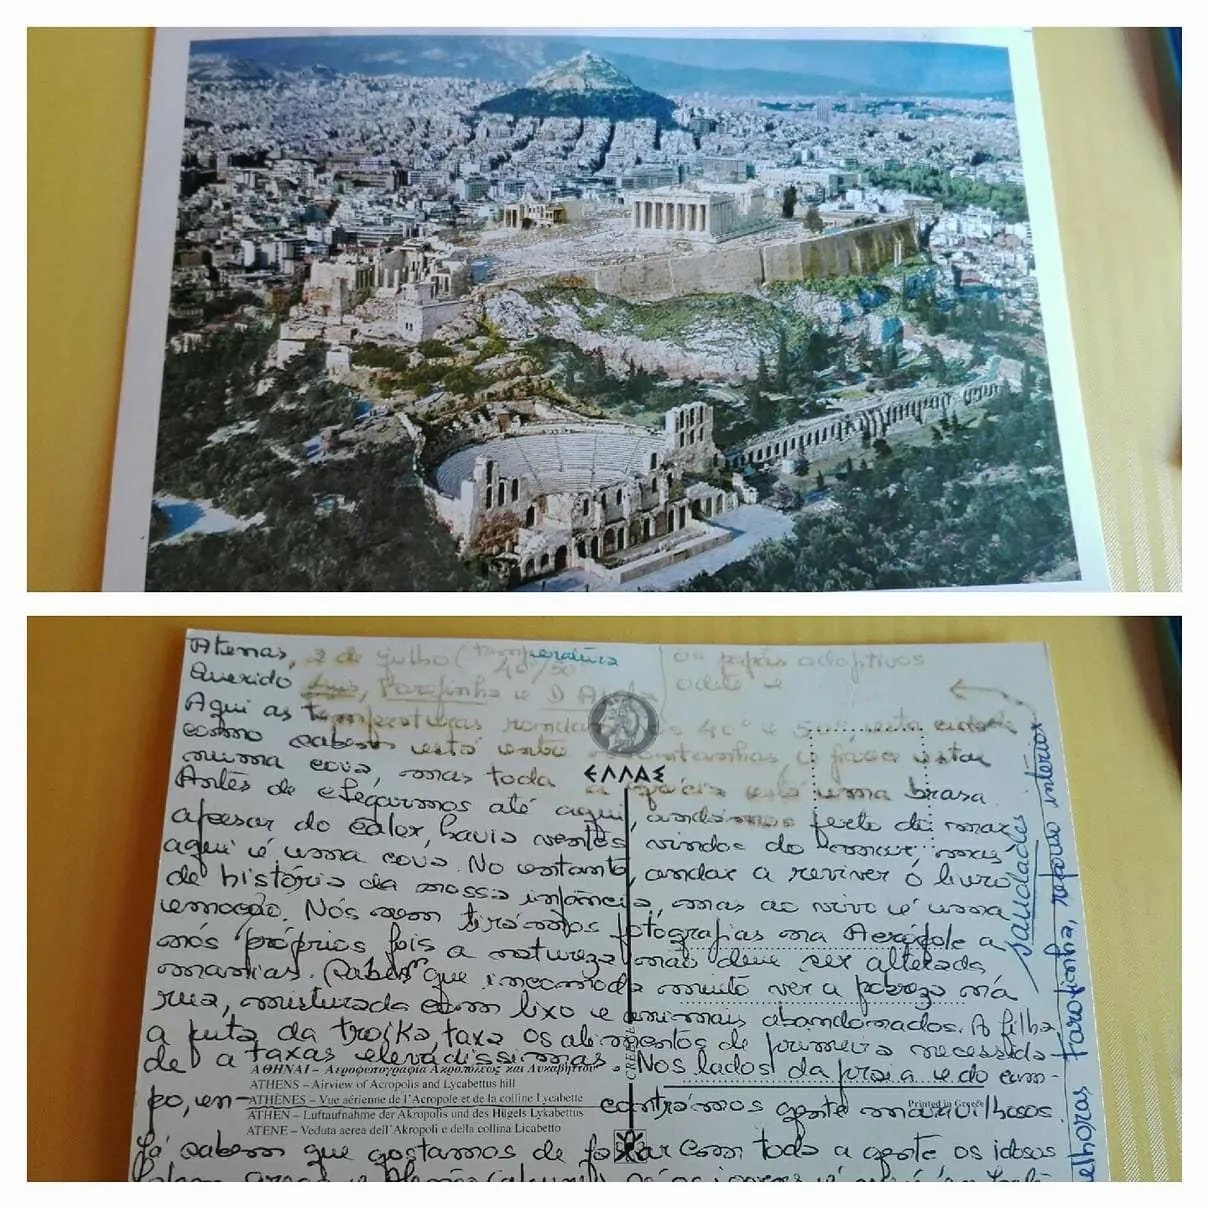 Atenas, 2 de Julho (temperatura
40°/50°
os papás adoptivos
Odete e
Querido Luis, Farofinha e D. Aida
Aqui as temperaturas ronda os 40° e 50°, esta cidade
como sabem está entre montanhas, é ficar estar
numa cova, mas toda a grécia está uma brasa.
Antes de chegarmos até aqui, andámos perto do mar
apesar do calor, havia ventos vindos do mar, mas
aqui é uma cova. No entanto, andar a reviver o livro
de história da nossa infância, mas ao vivo é uma
emoção. Nós nem tirámos fotografias na Acrópole a
nós próprios pois a natureza não deve ser alterada
manias. Sabem que incomoda muito ver a pobreza na
rua, misturada com lixo e animais abandonados. A filha
da puta da troika, taxa os alimentos de primeira necessida-
de a taxas elevadissimas. Nos lados da praia e do cam-
po, encontrámos gente maravilhosa.
Já sabem que gostamos de falar com toda a gente os idosos
falam grego e Alemão
ΕΛΛΑΣ
ΑΘΗΝΑΙ – Αεροφωτογραφία Ακροπόλεως και Λυκαβηττού
ATHENS – Airview of Acropolis and Lycabettus hill
ATHÈNES – Vue aérienne de l'Acropole et de la colline Lycabette
ATHEN – Luftaufnahme der Akropolis und des Hügels Lykabettus
ATENE – Veduta aerea dell'Akropoli e della collina Licabetto
Printed in Greece
saudades
elhoras Farofinha, repouso